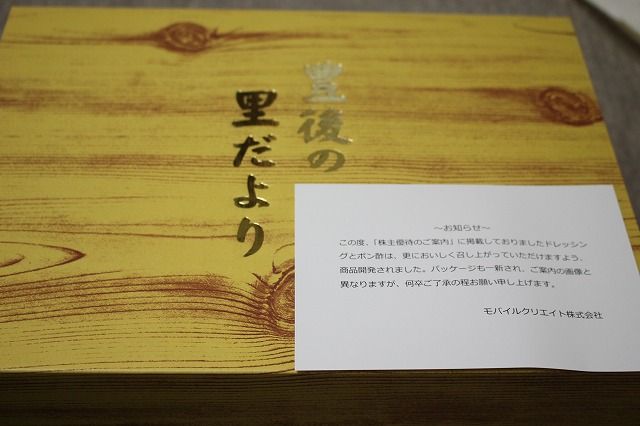 豊後の
里だより
～お知らせ～
この度、「株主優待のご案内」に掲載しておりましたドレッシン
グとポン酢は、更においしく召し上がっていただけますよう、
商品開発されました。パッケージも一新され、ご案内の画像と
異なりますが、何卒ご了承の程お願い申し上げます。
モバイルクリエイト株式会社